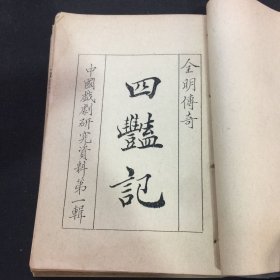 全明傳奇
四豔記
中國戲劇研究資料第一輯